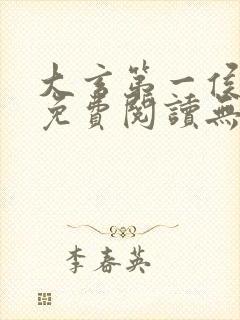 大言第一侯
免費閱讀無
李春英